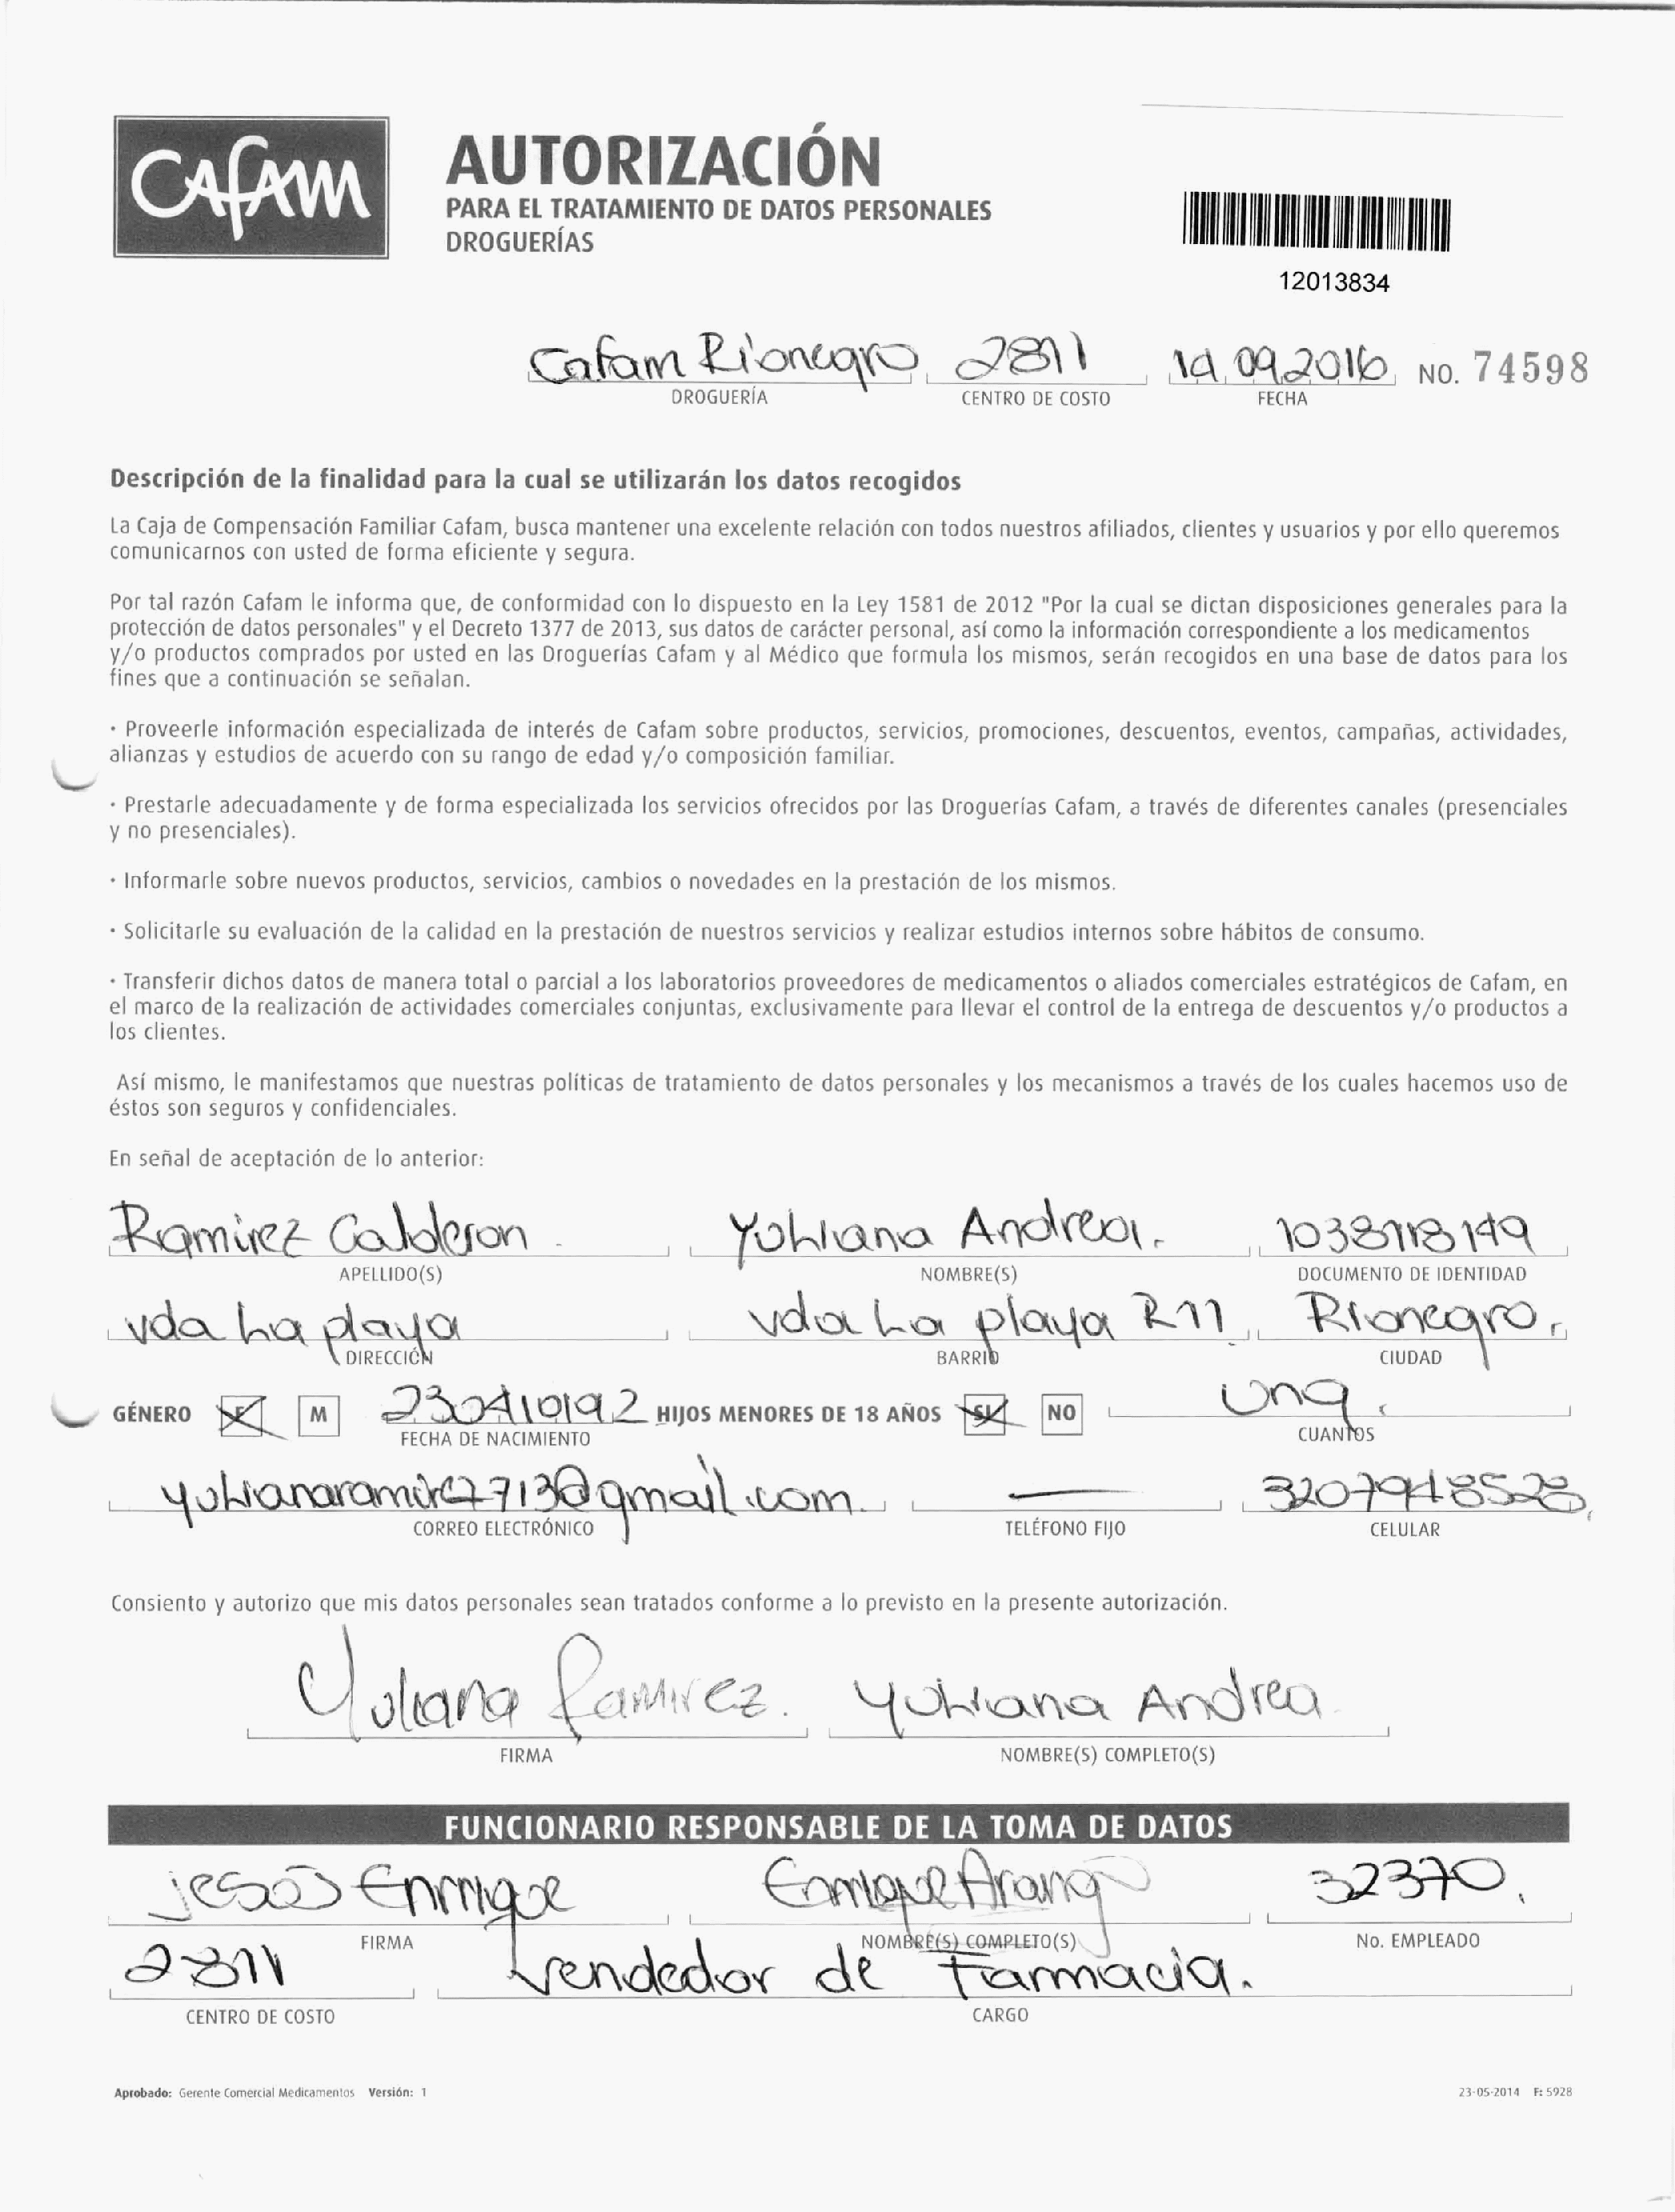 CAFAM
AUTORIZACIÓN
PARA EL TRATAMIENTO DE DATOS PERSONALES
DROGUERÍAS
12013834
Cafam Rionegro 2811 19 09 2016 NO. 74598
DROGUERÍA CENTRO DE COSTO FECHA
Descripción de la finalidad para la cual se utilizarán los datos recogidos
La Caja de Compensación Familiar Cafam, busca mantener una excelente relación con todos nuestros afiliados, clientes y usuarios y por ello queremos
comunicarnos con usted de forma eficiente y segura.
Por tal razón Cafam le informa que, de conformidad con lo dispuesto en la Ley 1581 de 2012 "Por la cual se dictan disposiciones generales para la
protección de datos personales" y el Decreto 1377 de 2013, sus datos de carácter personal, así como la información correspondiente a los medicamentos
y/o productos comprados por usted en las Droguerías Cafam y al Médico que formula los mismos, serán recogidos en una base de datos para los
fines que a continuación se señalan.
· Proveerle información especializada de interés de Cafam sobre productos, servicios, promociones, descuentos, eventos, campañas, actividades,
alianzas y estudios de acuerdo con su rango de edad y/o composición familiar.
· Prestarle adecuadamente y de forma especializada los servicios ofrecidos por las Droguerías Cafam, a través de diferentes canales (presenciales
y no presenciales).
· Informarle sobre nuevos productos, servicios, cambios o novedades en la prestación de los mismos.
· Solicitarle su evaluación de la calidad en la prestación de nuestros servicios y realizar estudios internos sobre hábitos de consumo.
· Transferir dichos datos de manera total o parcial a los laboratorios proveedores de medicamentos o aliados comerciales estratégicos de Cafam, en
el marco de la realización de actividades comerciales conjuntas, exclusivamente para llevar el control de la entrega de descuentos y/o productos a
los clientes.
Así mismo, le manifestamos que nuestras políticas de tratamiento de datos personales y los mecanismos a través de los cuales hacemos uso de
éstos son seguros y confidenciales.
En señal de aceptación de lo anterior:
Ramirez Calderon Yuliana Andrea. 1038118149
APELLIDO(S) NOMBRE(S) DOCUMENTO DE IDENTIDAD
vda La playa vda La playa R11 Rionegro.
DIRECCIÓN BARRIO CIUDAD
GÉNERO F M 23041992 HIJOS MENORES DE 18 AÑOS SI NO una.
FECHA DE NACIMIENTO CUANTOS
@gmail.com. — 3207948528
CORREO ELECTRÓNICO TELÉFONO FIJO CELULAR
Consiento y autorizo que mis datos personales sean tratados conforme a lo previsto en la presente autorización.
Yuliana Ramirez. Yuliana Andrea
FIRMA NOMBRE(S) COMPLETO(S)
FUNCIONARIO RESPONSABLE DE LA TOMA DE DATOS
jesus Enrrique Enrrique Arango 32370.
FIRMA NOMBRE(S) COMPLETO(S) No. EMPLEADO
2811 vendedor de Farmacia.
CENTRO DE COSTO CARGO
Aprobado: Gerente Comercial Medicamentos Versión: 1 23-05-2014 F: 5928